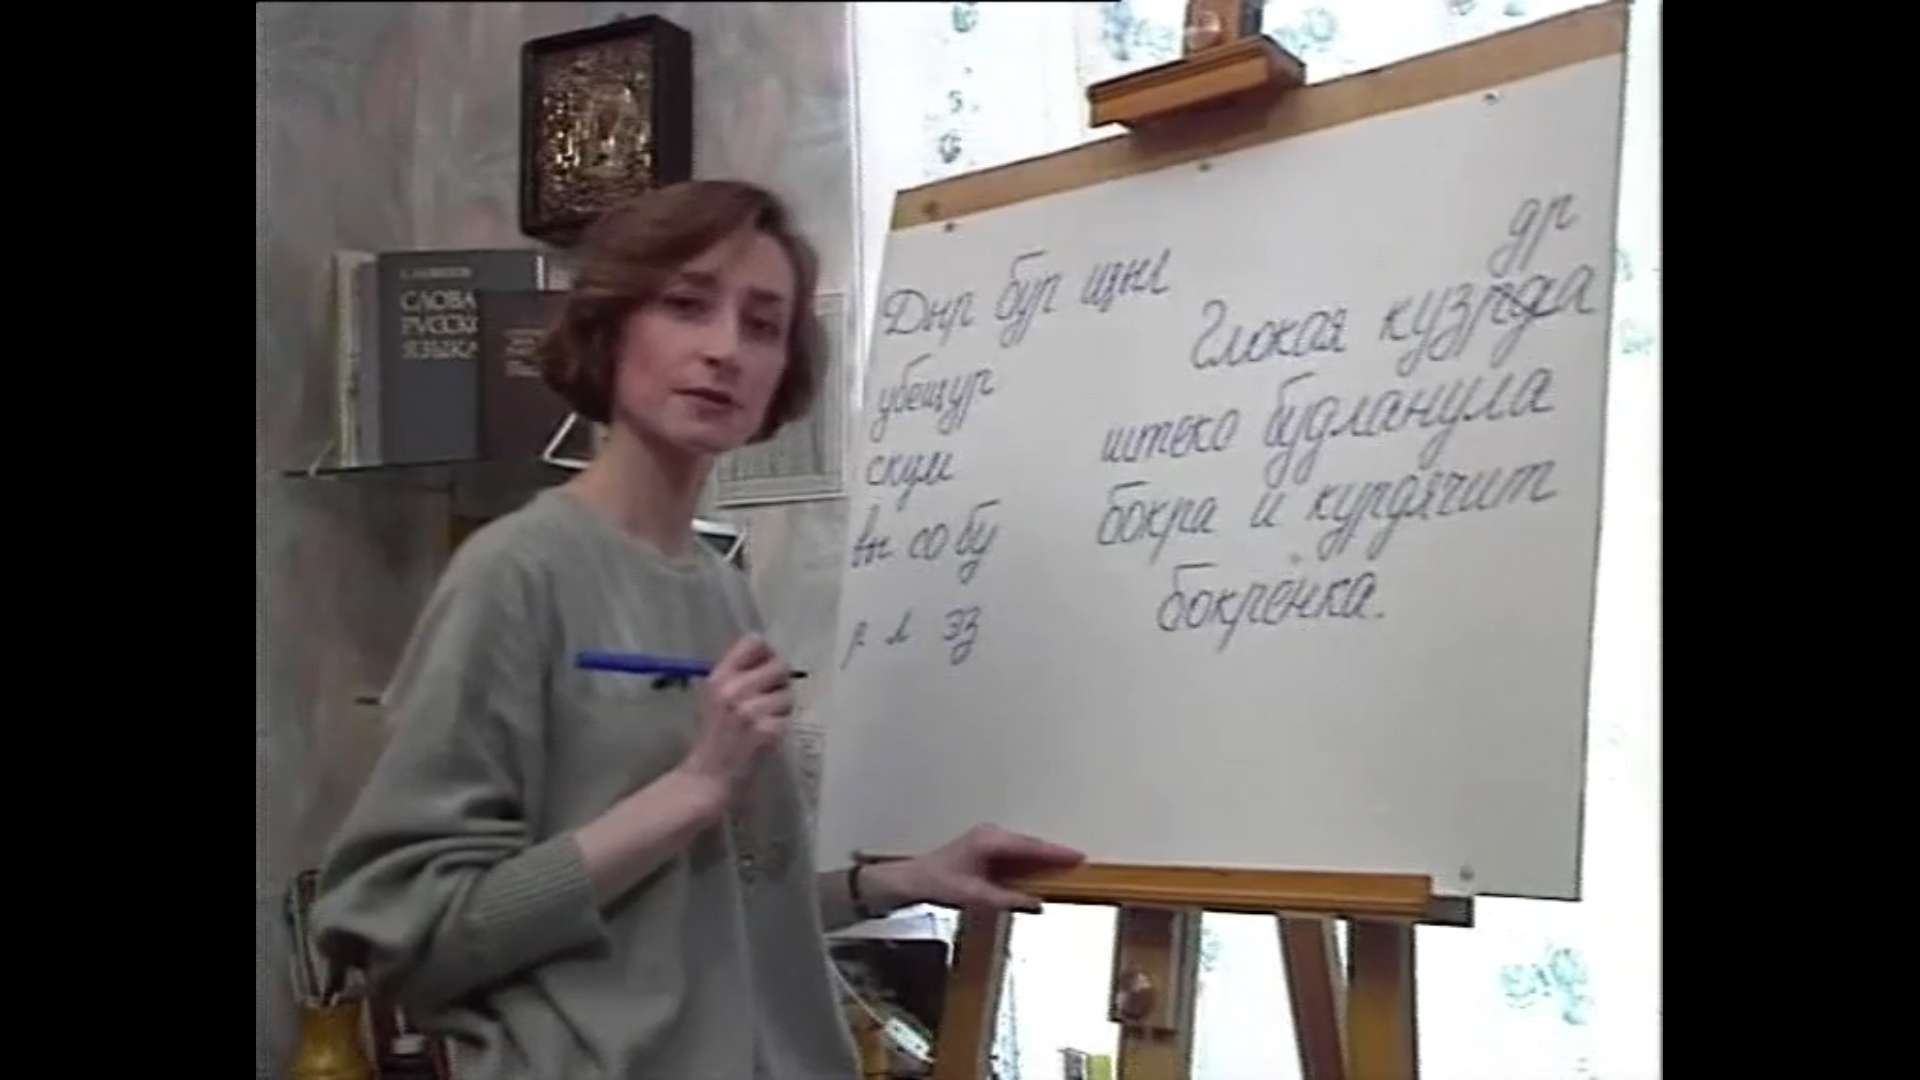 СЛОВА
РУССКО
ЯЗЫКА
Дыр бул щыл
убещур
скум
вы со бу
р л эз
др
Глокая куздра
штеко будланула
бокра и курдячит
бокрёнка.